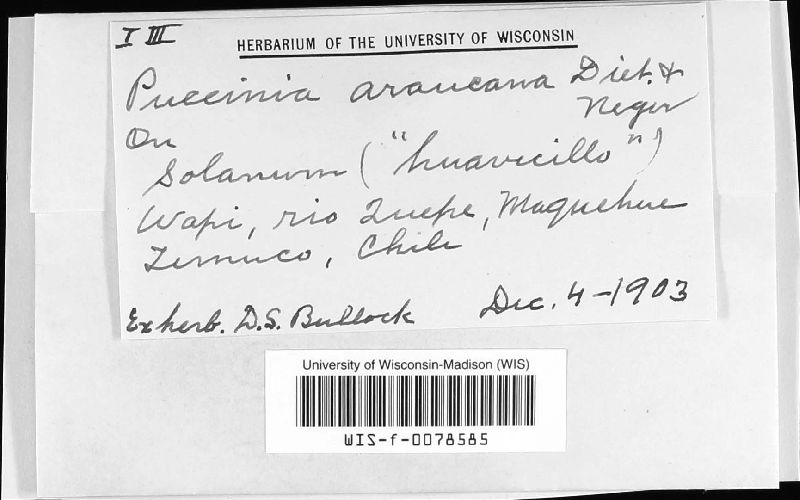 I III
HERBARIUM OF THE UNIVERSITY OF WISCONSIN
Puccinia araucana Diet. &
Neger
On
Solanum ("huavicillo")
Wapi, rio Quepe, Maquehue
Temuco, Chile
Ex herb. D.S. Bullock Dec. 4-1903
University of Wisconsin-Madison (WIS)
WIS-f-0078585